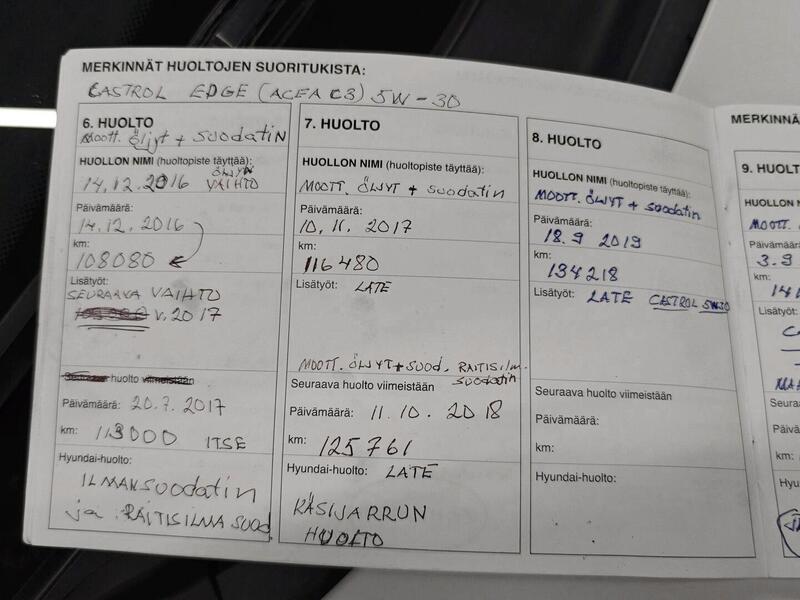 MERKINNÄT HUOLTOJEN SUORITUKISTA:
CASTROL EDGE (ACEA C3) 5W-30
6. HUOLTO
Moott. öljyt + suodatin
HUOLLON NIMI (huoltopiste täyttää):
ÖLJYN
14.12.2016 VAIHTO
Päivämäärä:
14.12.2016
km:
108080
Lisätyöt:
SEURAAVA VAIHTO
v. 2017
Seuraava huolto viimeistään
Päivämäärä: 20.7.2017
km: 113000 ITSE
Hyundai-huolto:
ILMANsuodatin
ja RAITISILMA suod.
7. HUOLTO
HUOLLON NIMI (huoltopiste täyttää):
MOOTT. ÖLJYT + suodatin
Päivämäärä:
10.11.2017
km:
116480
Lisätyöt: LATE
MOOTT. ÖLJYT + SUOD. RAITISILM.
suodatin
Seuraava huolto viimeistään
Päivämäärä: 11.10.2018
km: 125761
Hyundai-huolto: LATE
KÄSIJARRUN
HUOLTO
8. HUOLTO
HUOLLON NIMI (huoltopiste täyttää):
MOOTT. ÖLJYT + suodatin
Päivämäärä:
18.9 2019
km:
134218
Lisätyöt: LATE CASTROL 5W30
Seuraava huolto viimeistään
Päivämäärä:
km:
Hyundai-huolto:
MERKINNÄ
9. HUOLT
HUOLLON N
MOOTT.
Päivämäärä
3.9
km:
Lisätyöt:
Seura
Päivä
km:
Hyu